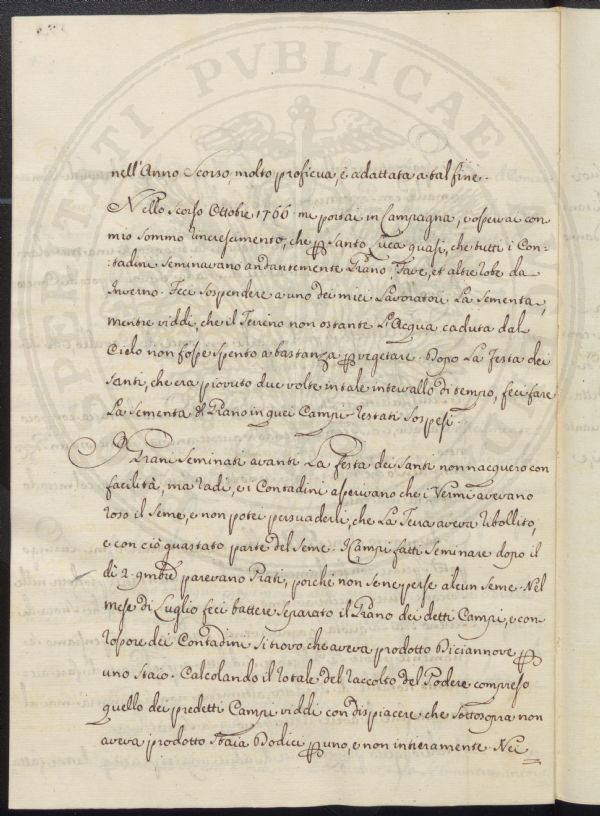 nell'Anno Scorso, molto proficua, e adattata a tal fine.
Nello scorso Ottobre 1766 mi portai in Campagna, e osservai con
mio sommo Rincrescimento, che p Santo Luca quasi, che tutti i Con:
:tadini Seminavano andantemente Grano, Fave, et altre robe da
Inverno. Feci Sospendere a uno dei miei Lavoratori La Sementa,
mentre viddi, che il Terreno non ostante L'Acqua caduta dal
Cielo non fosse spento a bastanza p vegetare. Dopo La Festa dei
Santi, che era piovuto due volte in tale intervallo di tempo, feci fare
La Sementa di Grano in quei Campi restati Sospesi.
I Grani Seminati avanti La Festa dei Santi non nacquero con
facilità, ma radi, e i Contadini asserivano che i Vermi avevano
roso il Seme, e non potei persuaderli, che La Terra aveva ribollito,
e con ciò guastato parte del Seme. I Campi fatti Seminare dopo il
dì 2. 9mbre parevano Prati, poiché non se ne perse alcun Seme. Nel
mese di Luglio feci battere Separato il Grano dei detti Campi, e con
l'opore dei Contadini si trovò che aveva prodotto Diciannove p
uno Staio. Calcolando il totale del raccolto del Podere compreso
quello dei predetti Campi viddi con dispiacere che Sottosopra non
aveva prodotto Staia Dodici p uno, e non intieramente. Nei
PVBLICAE